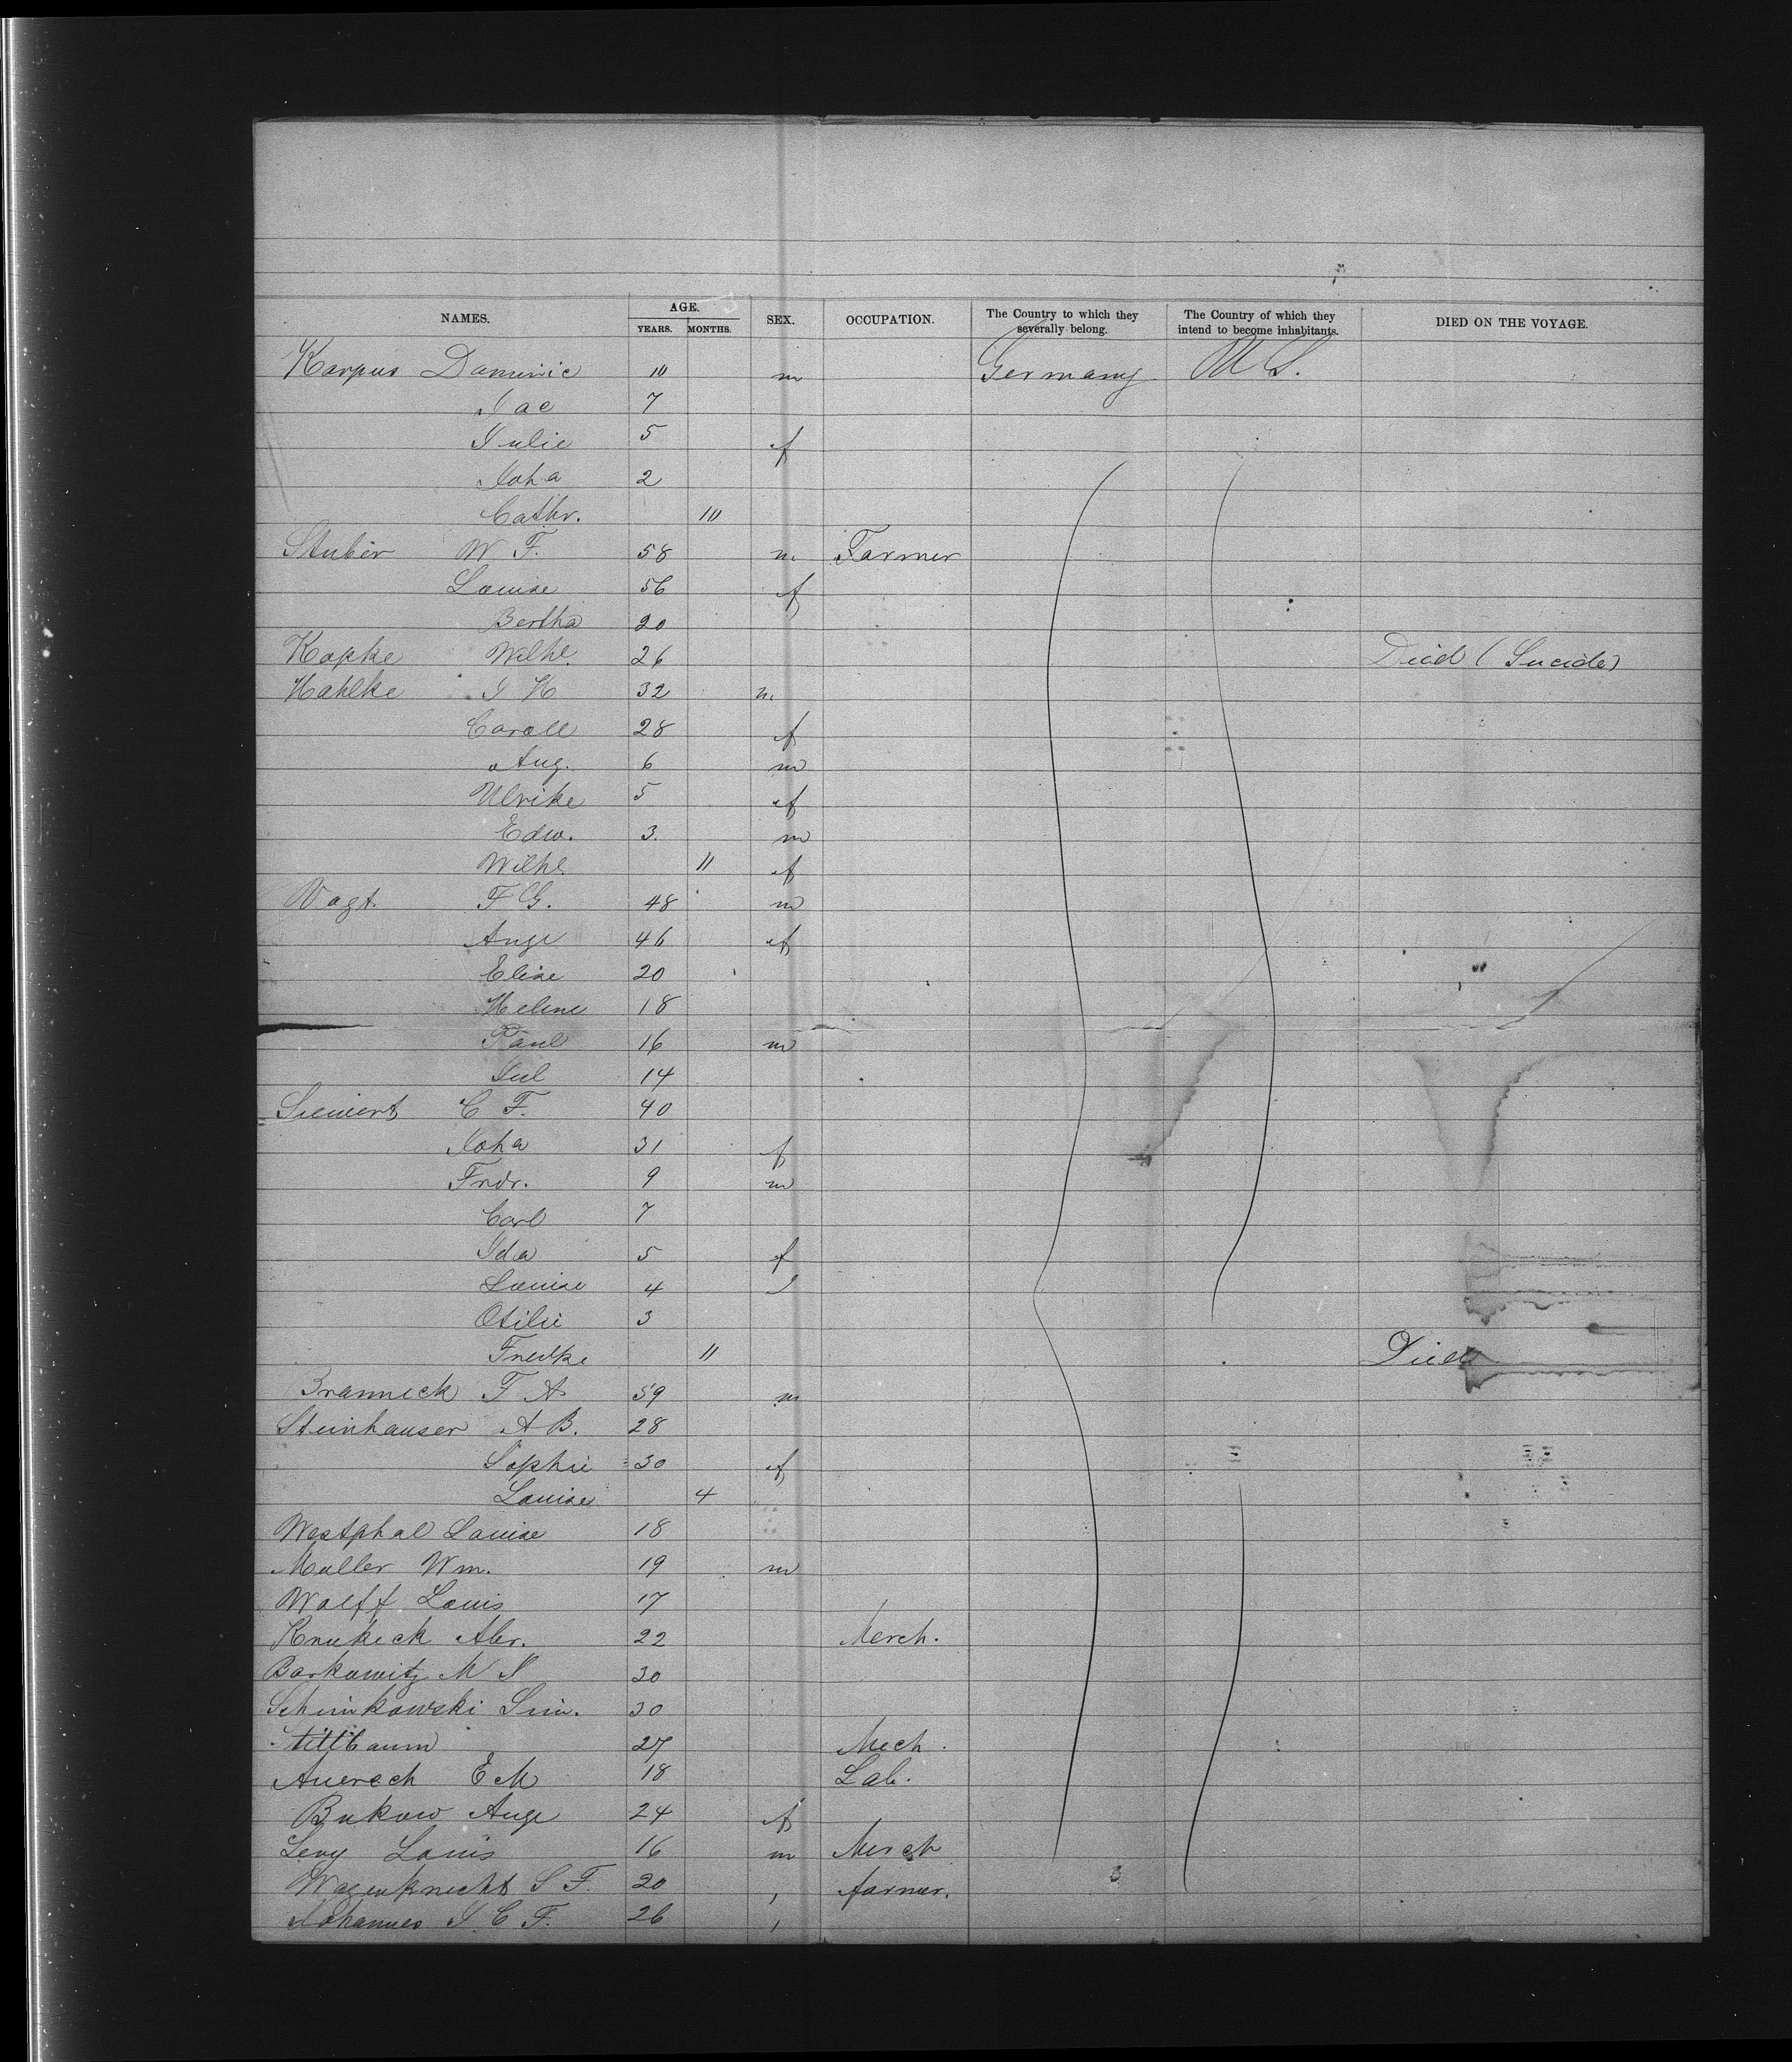 NAMES. AGE. YEARS. MONTHS. SEX. OCCUPATION. The Country to which they severally belong. The Country of which they intend to become inhabitants. DIED ON THE VOYAGE.
Karpus Dominic 10 m Germany U S.
Jac 7
Julie 5 f
Joha 2
Cathr. 10
Stuber W F. 58 m Farmer
Louise 56 f
Bertha 20
Kopke Wilhl. 26 Died (Sucide)
Hahlke J H 32 m
Caroll 28 f
Aug. 6 m
Ulrike 5 f
Edw. 3. m
Wilhl. 11 f
Vogt F G. 48 m
Auge 46 f
Elise 20
Helene 18
Paul 16 m
Jul 14
Siewert C F. 40
Joha 31 f
Frdr. 9 m
Carl 7
Ida 5 f
Louise 4
Otilie 3
Friedke 11 Died
Branneck F A 59 m
Steinhauser A B. 28
Sophie 30 f
Louise 4
Westphal Louise 18
Muller Wm. 19 m
Wolff Louis 17
Abr. 22 Merch.
Borkowitz M 30
Schimkowski Sim. 30
27 Mech.
Auerach E M 18 Lab.
Bukow Auge 24 f
Levy Louis 16 m Merch
Wagenknecht S F. 20 farmer.
Johannes J. C F. 26